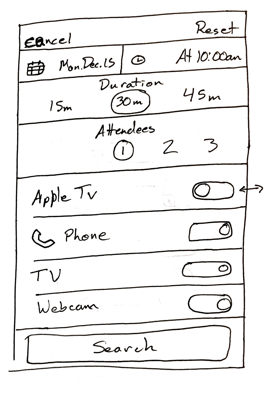 Cancel Reset
Mon.Dec.15 At 10:00am
Duration
15m 30m 45m
Attendees
1 2 3
Apple Tv
Phone
TV
Webcam
Search